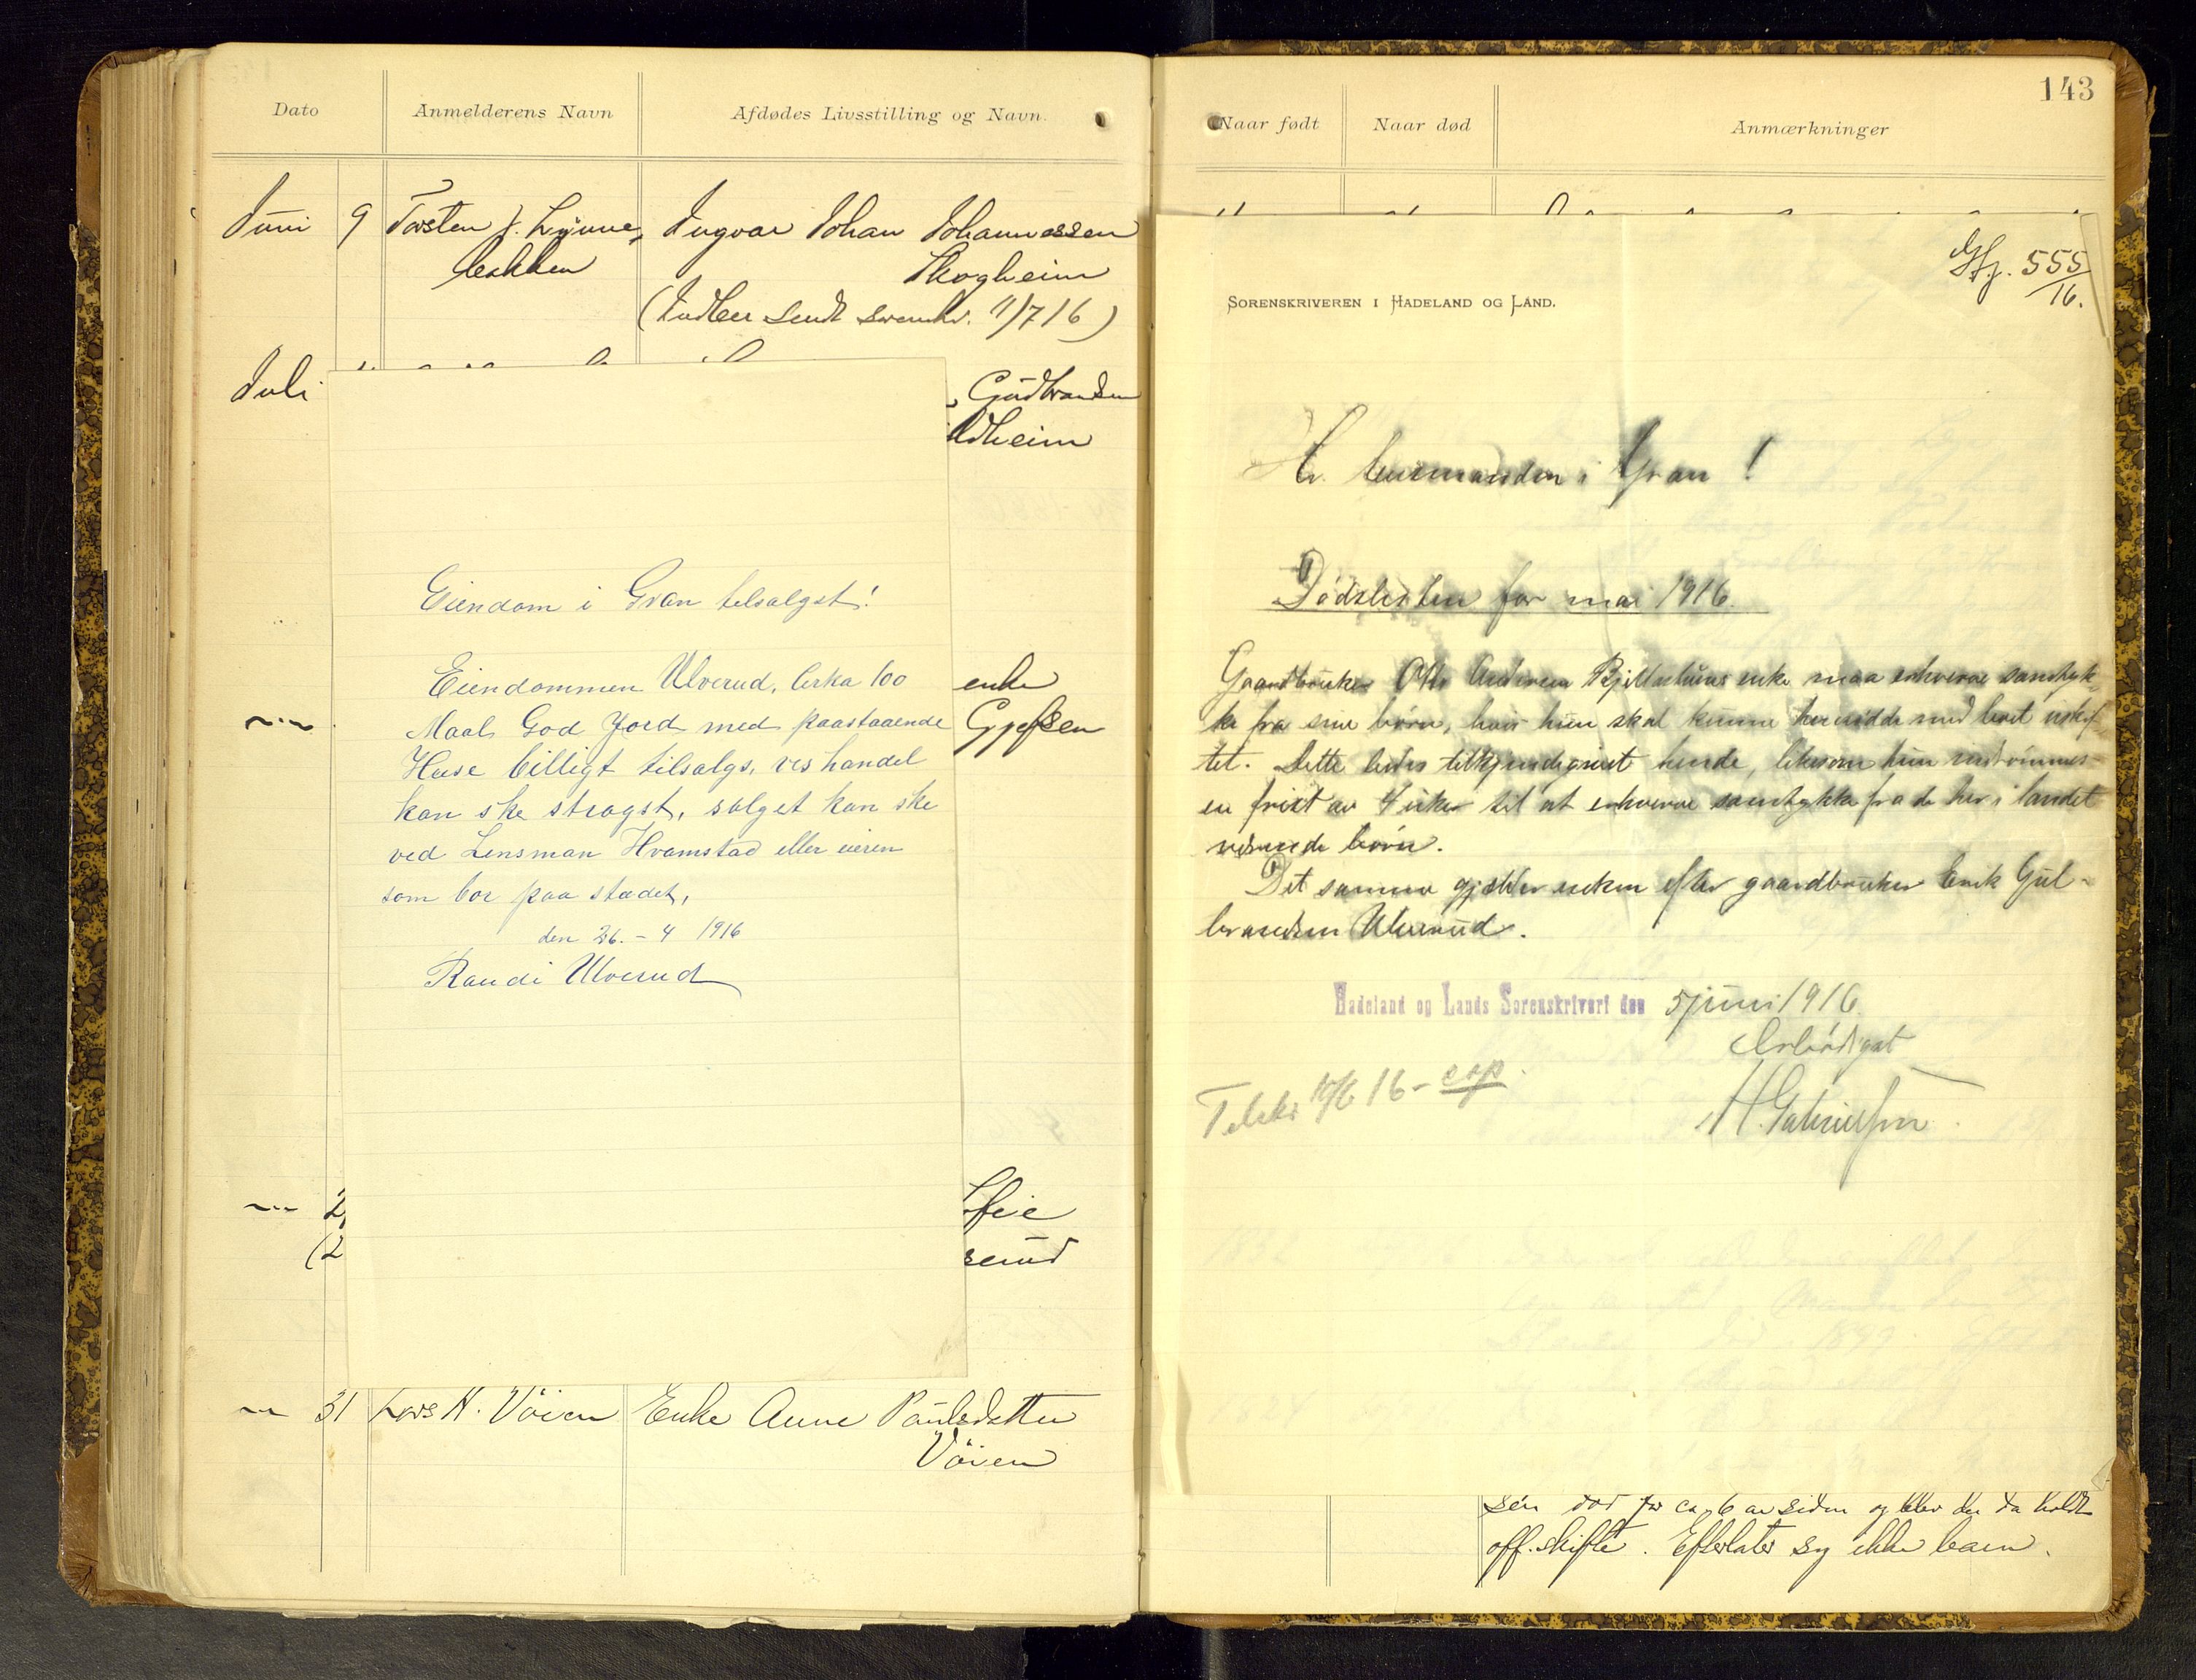 Dato
Anmelderens Navn
Afdødes Livsstilling og Navn.
Juni 9 Torsten J. Lynne- Ingvar Johan Johannessen
bakken Skogheim
(Indber sendt sorenskr. 11/7 16)
Juli Gudbrandsen
dheim
Eiendom i Gran tilsalgst!
Eiendommen Ulverud, Cirka 100
Maal God Jord med paastaaende
Huse billigt tilsalgs, vis handel
kan ske stragst, salget kan ske
ved Lensman Hvamstad eller eieren
som bor paa stædet,
den 26.-4 1916
Randi Ulverud
enke
Gjefsen
2
(2
serud
31 Lars H. Vöien Enke Anne Paulsdatter
Vöien
143
Naar født
Naar død
Anmærkninger
555/16.
SORENSKRIVEREN I HADELAND OG LAND.
Hr. lensmanden i Gran!
Dødslisten for mai 1916.
Gaardbruker Ole Andersen Bjellashuus enke maa erhverve samtyk-
ke fra sine börn, hvis hun skal kunne hensidde med boet uskif-
tet. Dette bedes tilkjendegivet hende, likesom hun indrömmes
en frist av 4 uker til at erhverve samtykke fra de her i landet
værende börn.
Det samme gjælder enken efter gaardbruker Erik Gul-
brandsen Ulverud.
Hadeland og Lands Sorenskriveri den 5 juni 1916.
Erbödigst
16 -
sen död for ca. 6 aar siden og blev der da holdt
off. skifte. Efterlater sig ikke barn.